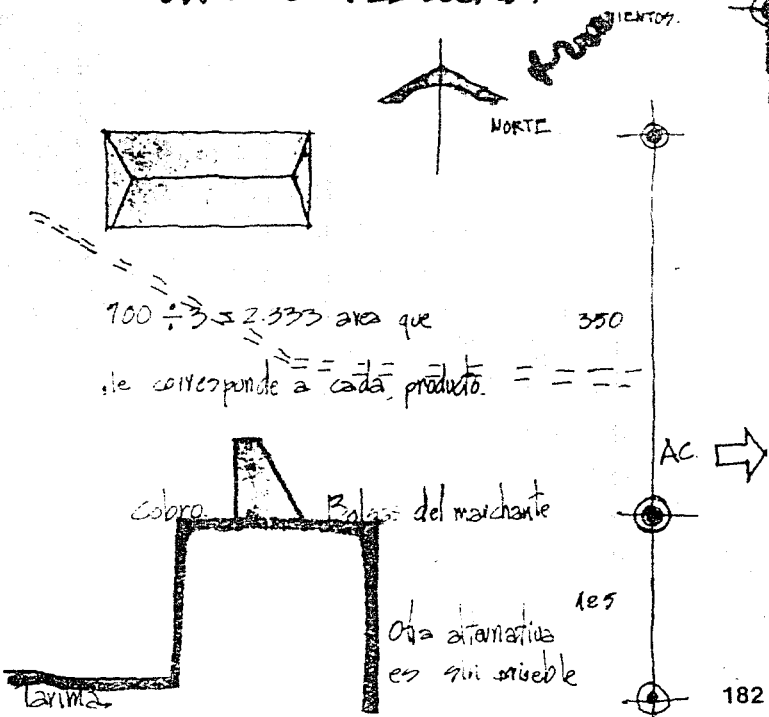 MIENTOS.
NORTE
700 ÷ 3 = 2.333 area que
350
le corresponde a cada producto.
AC.
cobro. Bolsas del marchante
125
Otra alternativa
es sin mueble
Tarima.
182